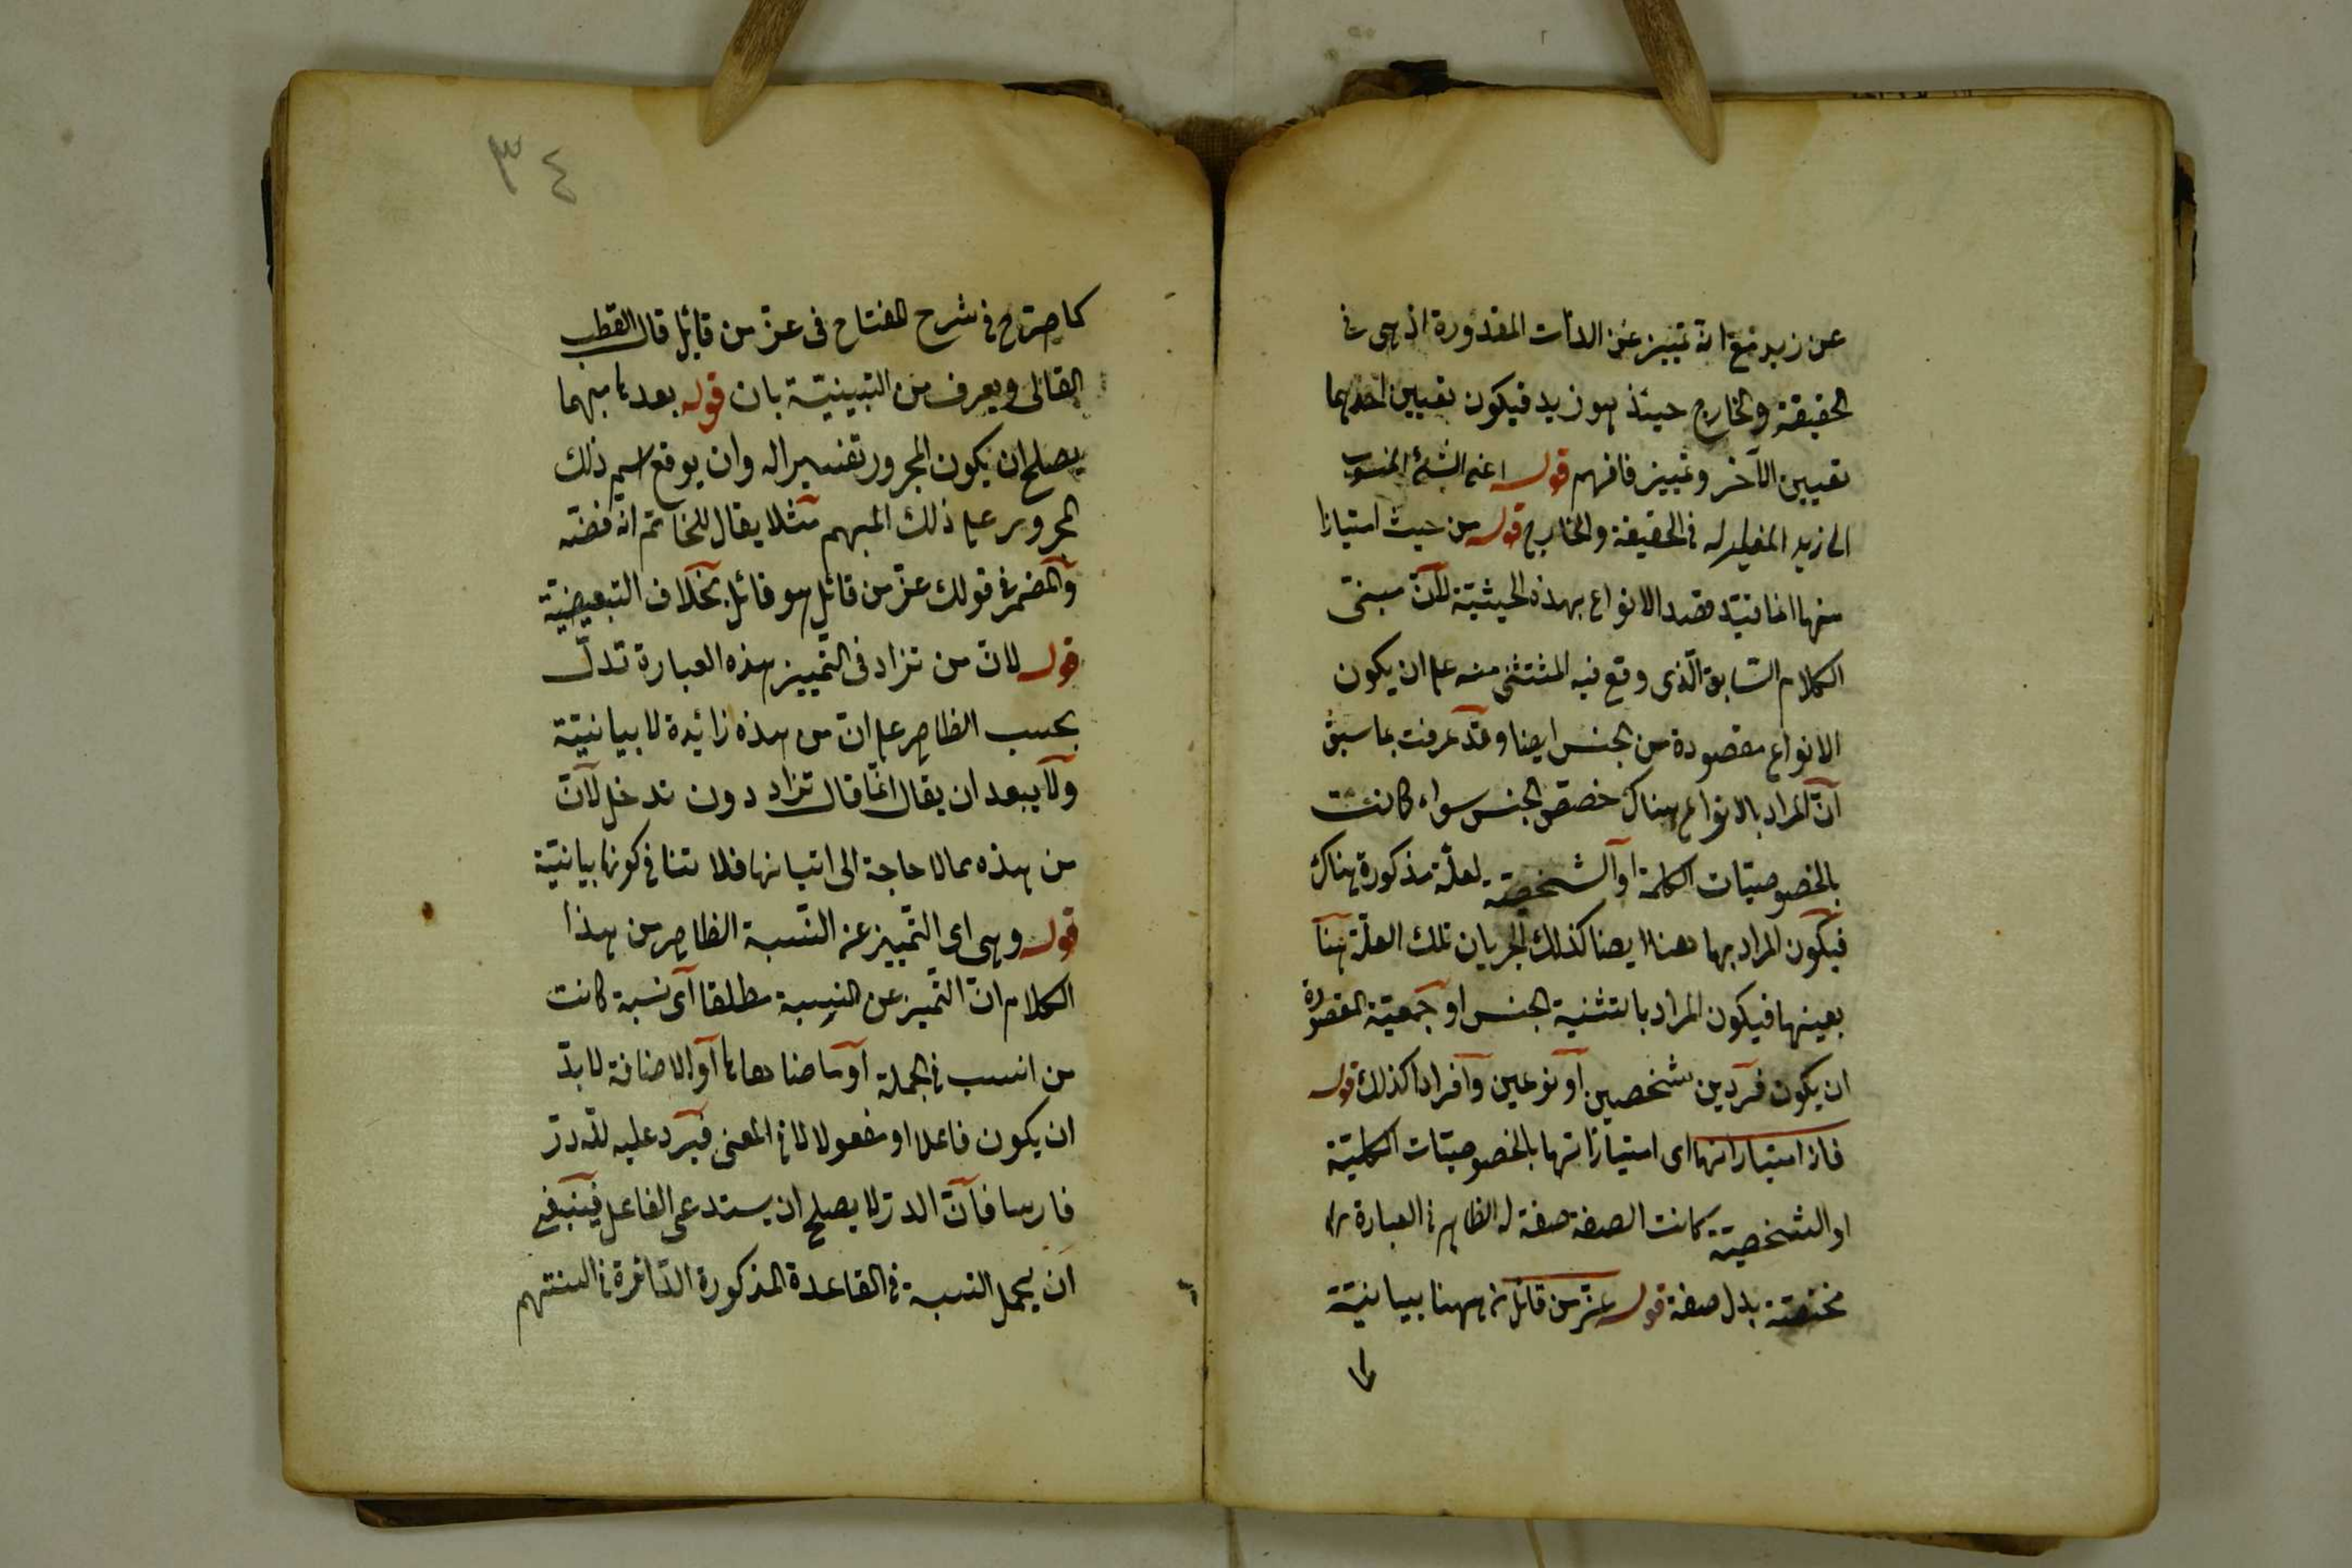 عن زيد مع انه تمييز عن الذات المقدورة اذ هى فى
الحقيقة والخارج حينئذ هو زيد فيكون تعيين احدهما
تعيين الآخر وتمييز فافهم قوله اعنى الشئ المنسوب
الى زيد المغاير له فى الحقيقة والخارج قوله من حيث امتيازا
منها انما قيد الانواع بهذه الحيثية لانّ مبنى
الكلام السّابق الّذى وقع فيه المثتثنى منه على ان يكون
الانواع مقصودة من الجنس ايضا وقد عرفت بما سبق
انّ المراد بالانواع هناك خصص الجنس سواء كانت
بالخصوصيّات الكلمة او الشخصيّة لعلّة مذكورة هناك
فيكون المراد بها ههنا ايضا كذلك لجريان تلك العلّة هنا
بعينها فيكون المراد بالتثنية الجنس او جمعيّة المقصودة
ان يكون فردين شخصين او نوعين وافرادا كذلك قوله
فاذا امتيازاتها اى امتيازاتها بالخصوصيّات الكليّة
او الشخصيّة كانت الصفة صفة له الظاهر فى العبارة
مختصّة بدل صفة قوله عزّ من قائل من ههنا بيانيّة
٣٤
كما صرّح فى شرح المفتاح فى عزّ من قائل قال القطب
الفالى ويعرف من التبيينيّة بان قوله بعد ما مبهما
يصلح ان يكون المجرور تفسيرا له وان يوقع اسم ذلك
المجرور على ذلك المبهم مثلا يقال للخاتم انه فضّه
والمضمر فى قولك عزّ من قائل هو قائل بخلاف التبعيضيّة
قوله لانّ من تزاد فى التّمييز هذه العبارة تدلّ
بحسب الظاهر على انّ من هذه زائدة لا بيانيّة
ولا يبعد ان يقال انّما قال تزاد دون تدخل لانّ
من هذه مما لا حاجة الى اتيانها فلا تنافى كونها بيانيّة
قوله وهى اى التّمييز عن النّسبة الظاهر من هذا
الكلام انّ التّميز عن النسبة مطلقا اى نسبة كانت
من انسب فى الجملة او ما ضاهاها او الاضافة لا بدّ
ان يكون فاعلا او مفعولا لما فى المعنى فيرد عليه للّه درّ
فارسا فانّ الدرّ لا يصلح ان يستدعى الفاعل فينبغى
ان يحمل النسبة فى القاعدة المذكورة الدّائرة فى السنتهم